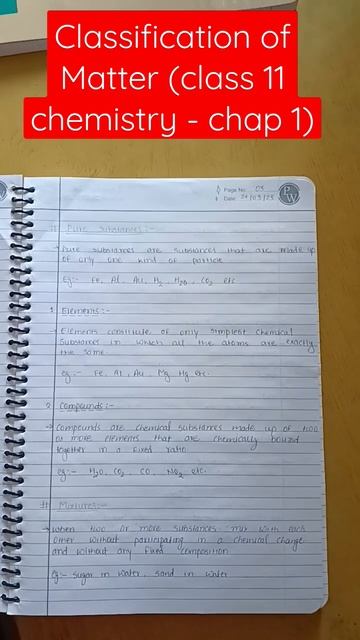 Classification of
Matter (class 11
chemistry - chap 1)
Page No. 03
Date: 24/03/25
PW
# Pure Substances:-
→ Pure substances are substances that are made up
of only one kind of particle
Eg:- Fe, Al, Au, H2, H2O, CO2 etc
1 Elements:-
→ Elements constitute of only simplest chemical
substances in which all the atoms are exactly
the same.
eg:- Fe, Al, Au, Mg, Hg etc.
2 Compounds:-
→ Compounds are chemical substances made up of two
or more elements that are chemically bound
together in a fixed ratio
eg:- H2O, CO2, CO, NO2 etc.
# Mixtures:-
→ When two or more substances mix with each
other without participating in a chemical change
and without any fixed composition
eg:- sugar in water, sand in water